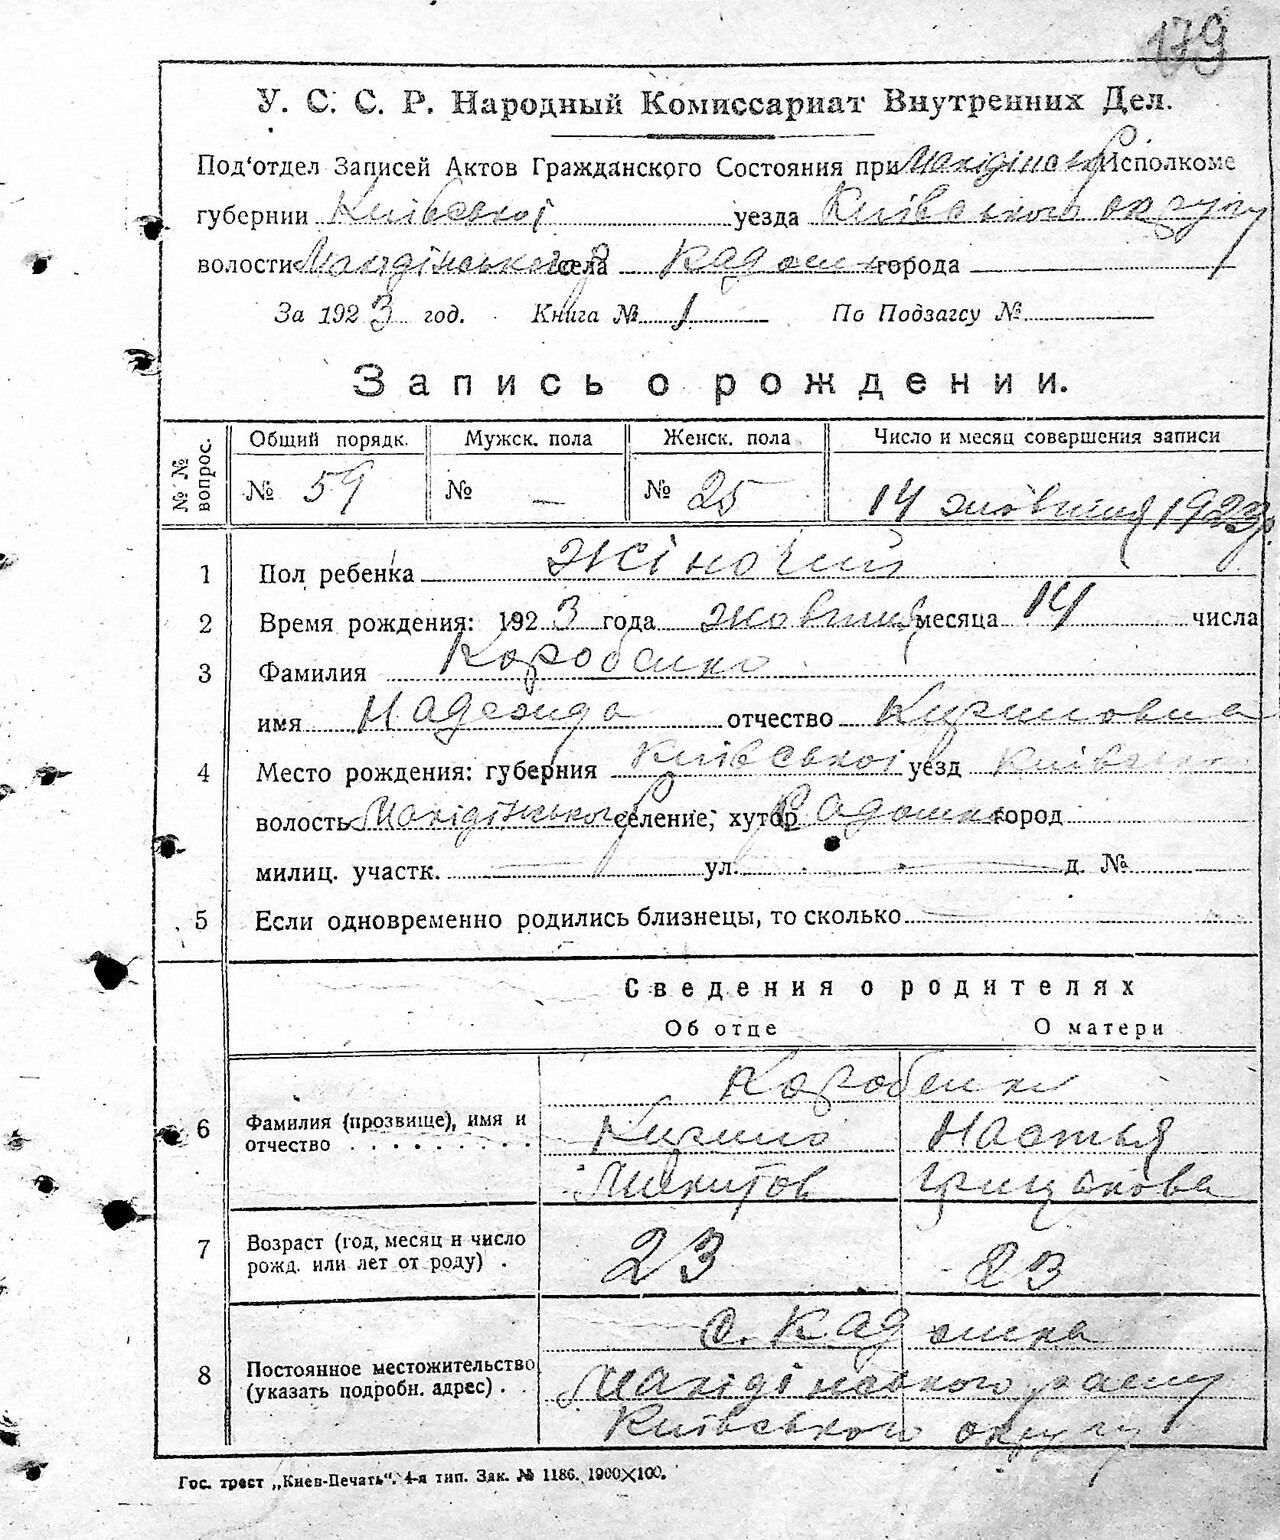 179
У. С. С. Р. Народный Комиссариат Внутренних Дел.
Под'отдел Записей Актов Гражданского Состояния при Исполкоме
губернии Київської уезда Київського округу
волости села города
За 1923 год. Книга № 1 По Подзагсу №
Запись о рождении.
№ № вопрос.
Общий порядк. Мужск. пола Женск. пола Число и месяц совершения записи
№ 59 № — № 25 14 жовтня 1923 р.
1 Пол ребенка Жіночий
2 Время рождения: 1923 года жовтня месяца 14 числа
3 Фамилия Коробенко
имя Надежда отчество Кириловна
4 Место рождения: губерния Київської уезд Київськ
волость селение, хутор город
милиц. участк. ул. д. №
5 Если одновременно родились близнецы, то сколько
Сведения о родителях
Об отце О матери
Коробенки
6 Фамилия (прозвище), имя и отчество
Кирило Настья
Микитов Грицькова
7 Возраст (год, месяц и число рожд. или лет от роду) .
23 23
8 Постоянное местожительство (указать подробн. адрес) . .
с.
району
Київського округу
Гос. трест „Киев-Печать". 4-я тип. Зак. № 1186. 1900×100.